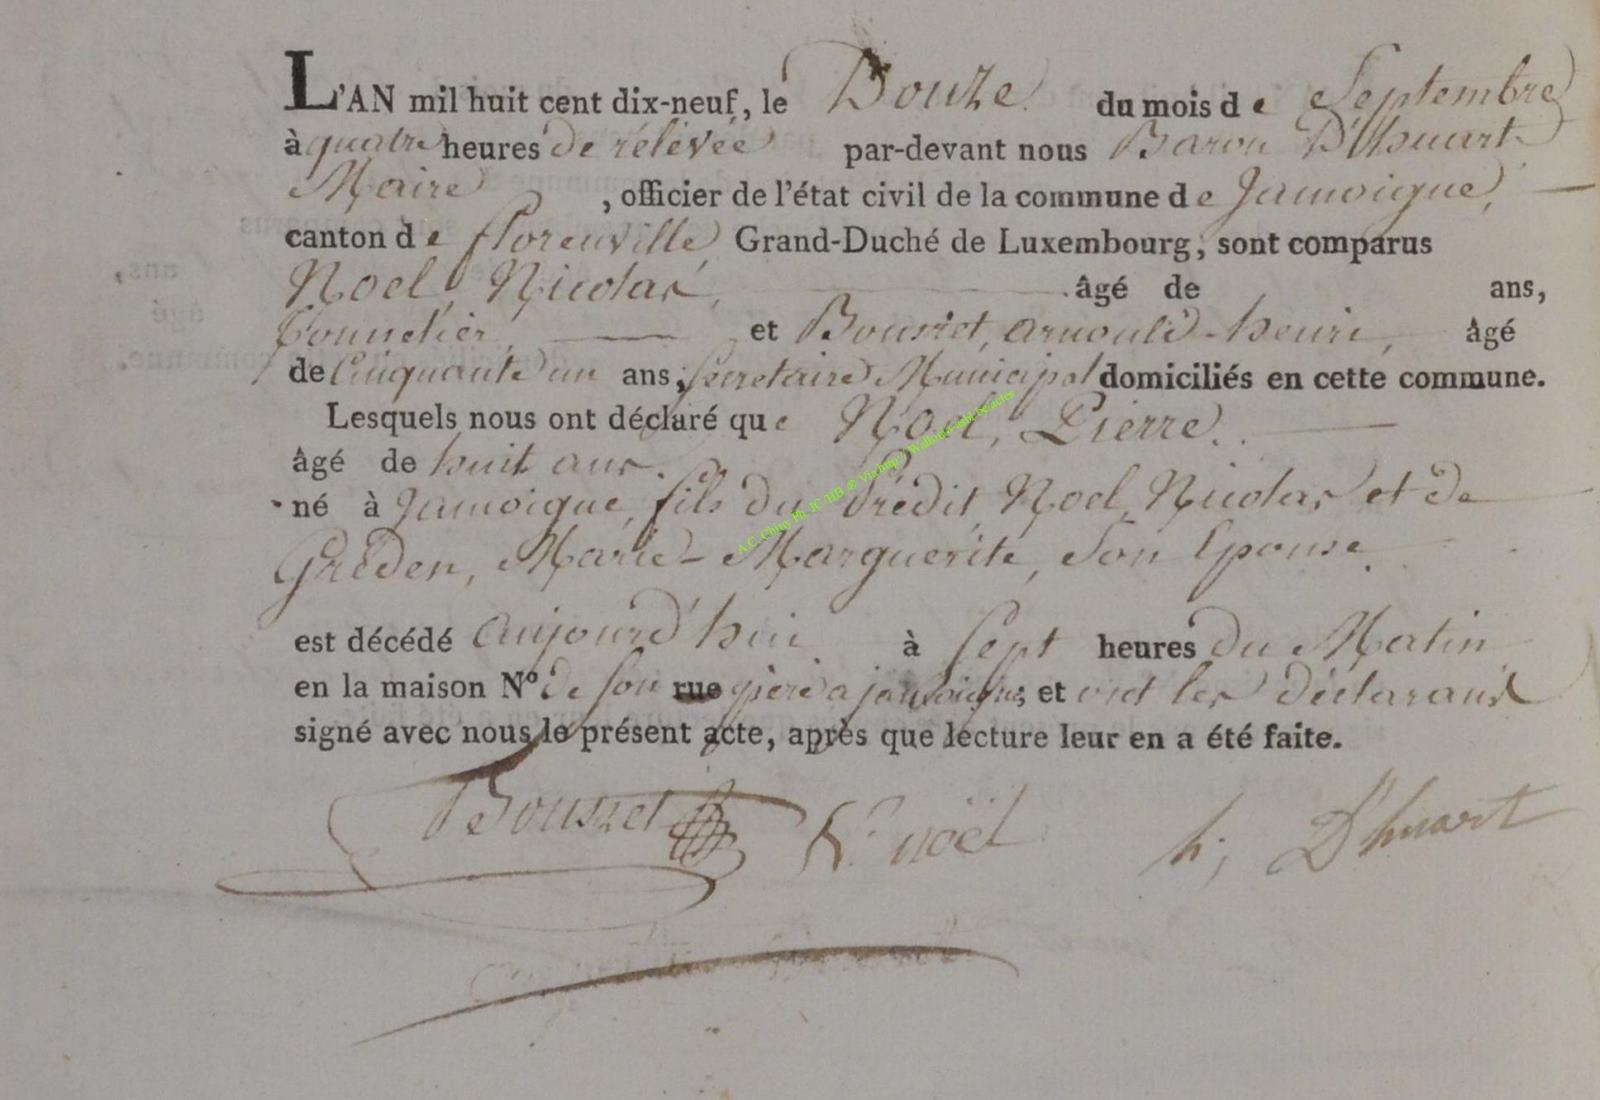 L'AN mil huit cent dix-neuf, le Douze du mois de Septembre
à quatre heures de rélévée par-devant nous Baron D'huart
Maire, officier de l'état civil de la commune de Jamoigne,
canton de florenville, Grand-Duché de Luxembourg, sont comparus
Noel, Nicolas, âgé de ans,
Tonnelier, et Bousret, arnould-henri, âgé
de Cinquante un ans, secretaire Municipal domiciliés en cette commune.
Lesquels nous ont déclaré que Noel, Pierre.
âgé de huit ans.
né à Jamoigne, fils du Prédit, Noel, Nicolas et de
Greden, Marie-Marguerite, Son Epouse.
est décédé aujourd'hui à Sept heures du Matin
en la maison N.º de son rue père a jamoigne; et ont les déclarans
signé avec nous le présent acte, après que lecture leur en a été faite.
Bousret N. noël h; D'huart
A.C. Chiny Ph JC /HB & Via http://Wallonia-asbl.be/actes